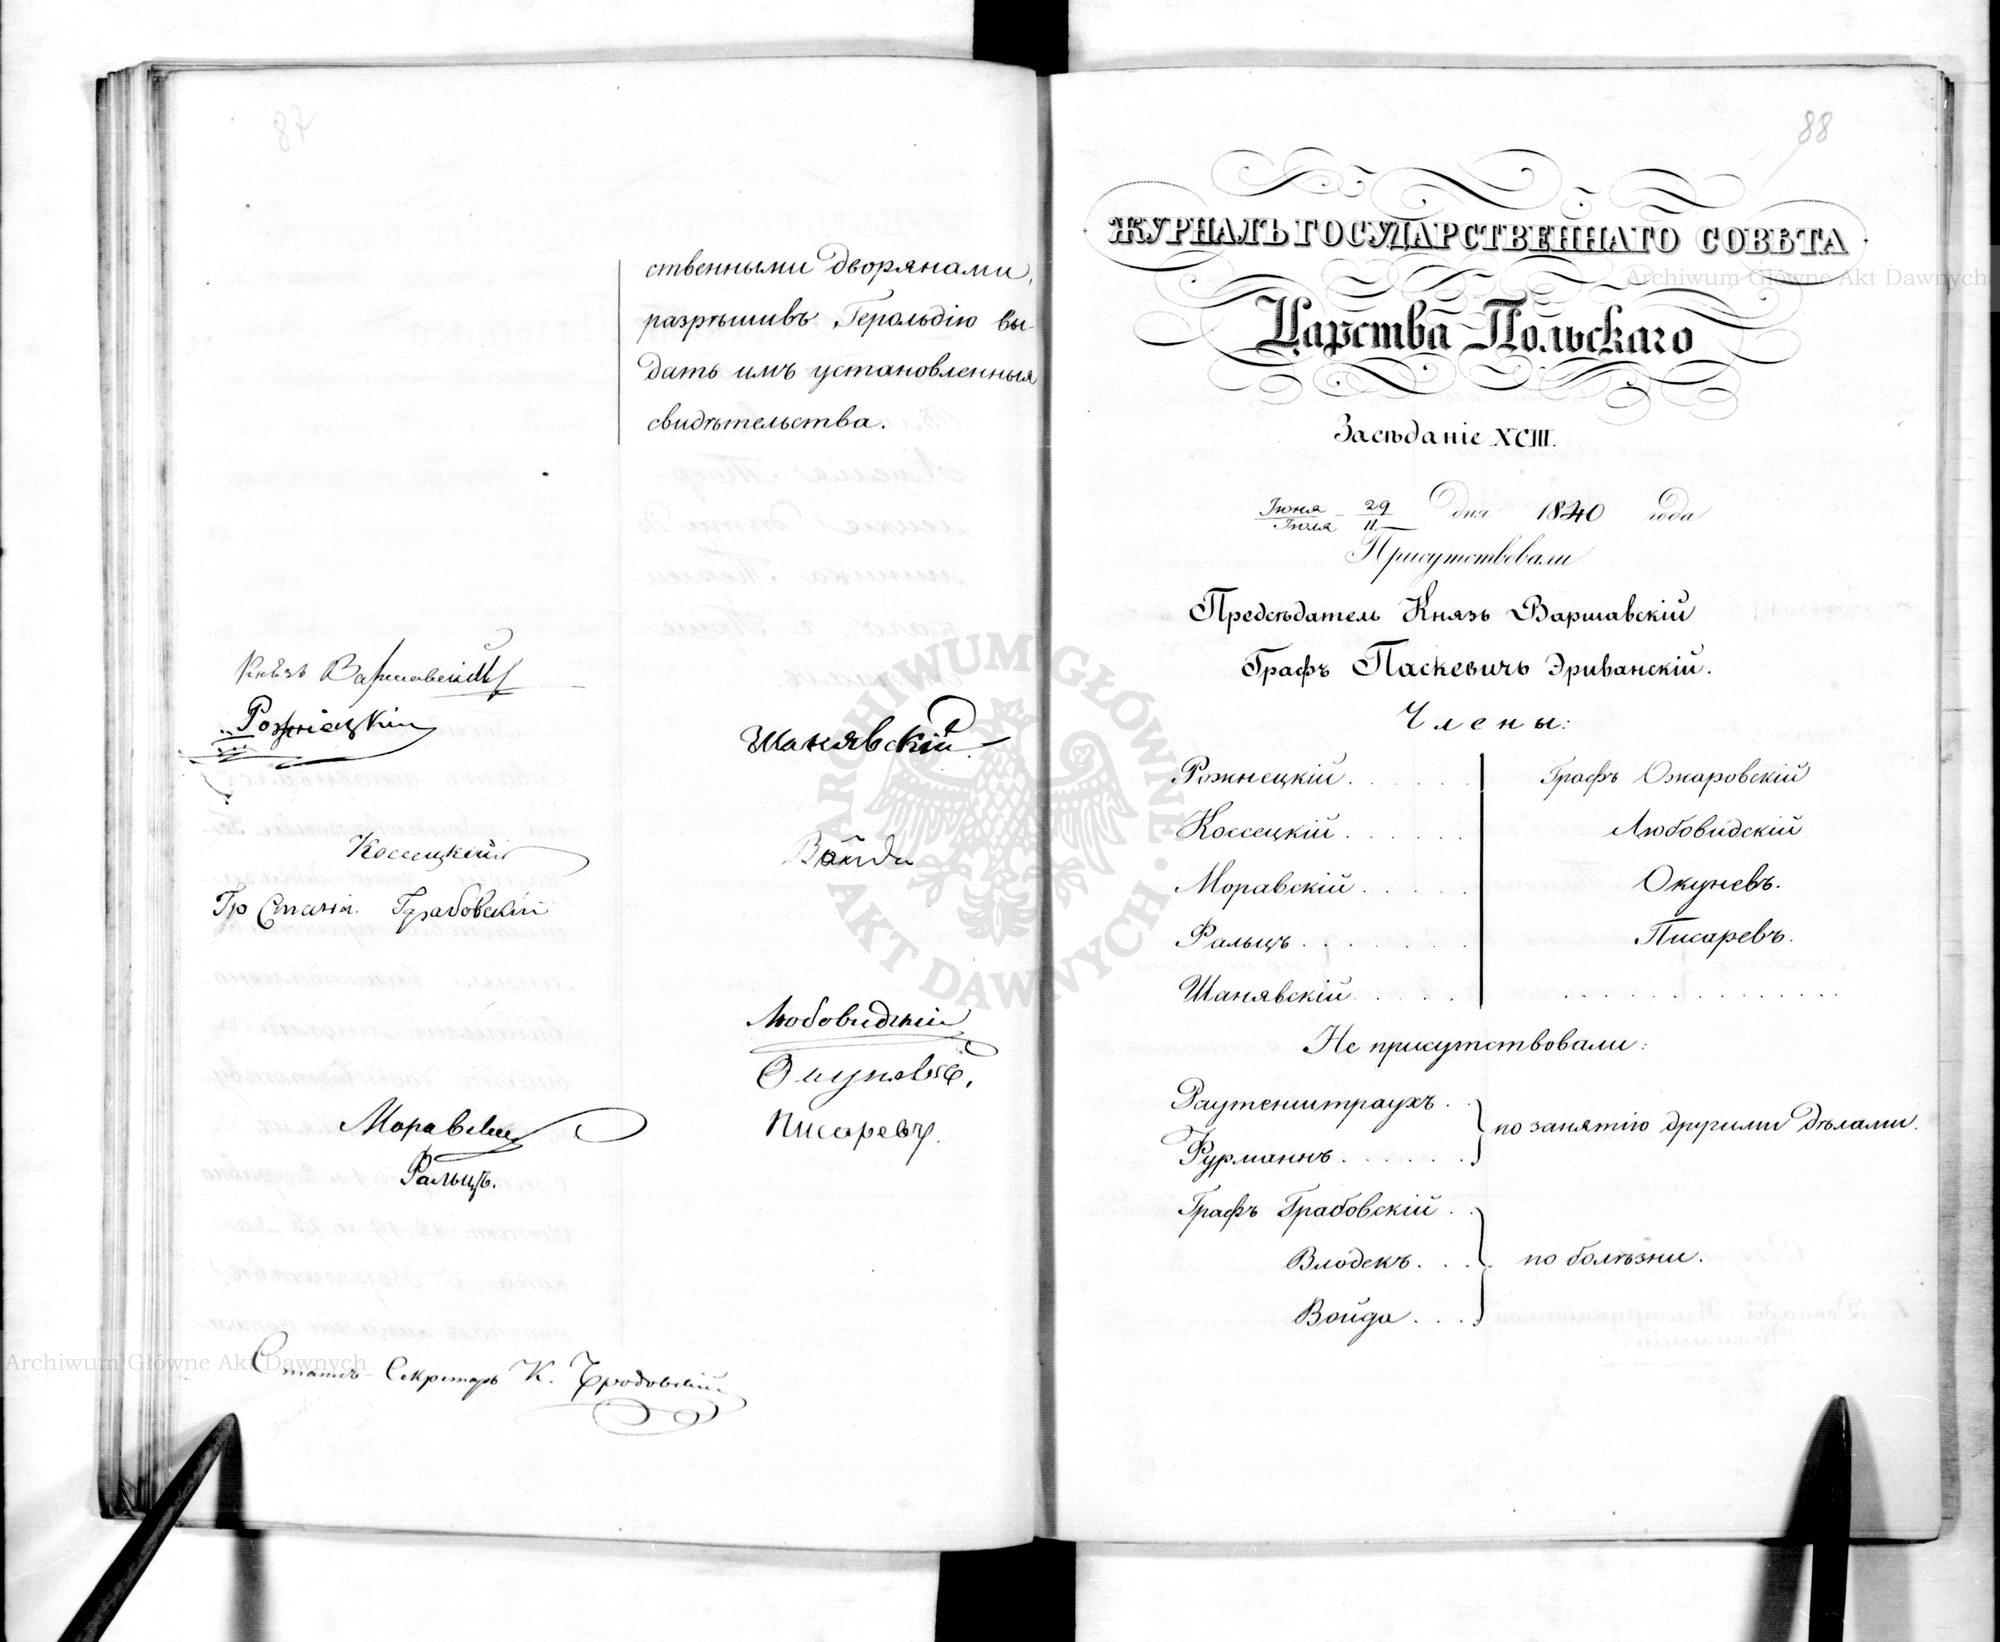 ственными дворянами,
разрѣшивъ Герольдію вы-
дать имъ установленныя
свидѣтельства.
Князь Варшавскій
Рожнецкій
Шанявскій
Коссецкій
Войда
Гр Грабовскій
Любовидскій
Окуневъ,
Моравскій
Писаревъ.
Ральцъ.
Статсъ-Секретарь К. Бродовскій
88
ЖУРНАЛЪ ГОСУДАРСТВЕННАГО СОВѢТА
Царства Польскаго
Засѣданіе XCIII.
Іюня 29 / Іюля 11 дня 1840 года
Присутствовали
Предсѣдатель Князь Варшавскій
Графъ Паскевичъ Эриванскій.
Члены:
Рожнецкій. Графъ Ожаровскій
Коссецкій. Любовидскій
Моравскій. Окуневъ.
Ральцъ. Писаревъ.
Шанявскій.
Не присутствовали:
Раутенштраухъ.
по занятію другими дѣлами.
Фурманнъ.
Графъ Грабовскій.
Влодекъ. по болѣзни.
Войда.
ARCHIWUM GŁÓWNE AKT DAWNYCH
Archiwum Główne Akt Dawnych
Archiwum Główne Akt Dawnych